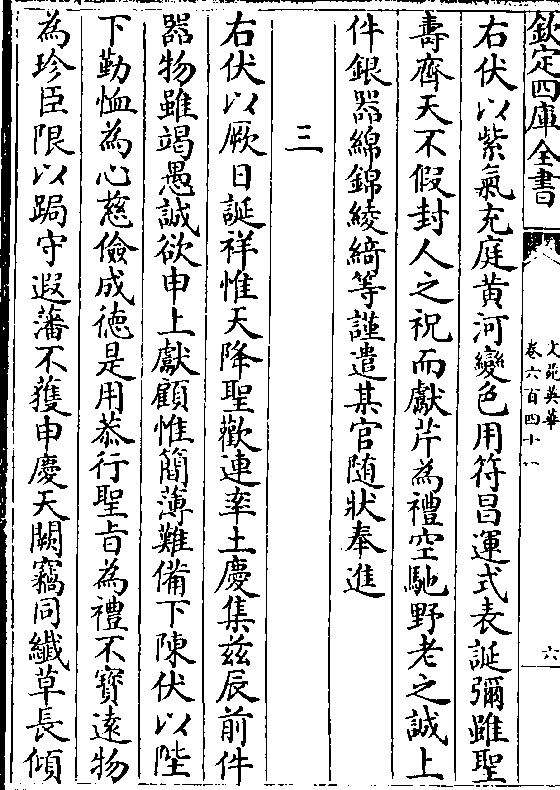 欽定四庫全書
文苑英華
卷六百四十
六
右伏以紫氣充庭黃河變色用符昌運式表誕彌雖聖
壽齊天不假封人之祝而獻芹為禮空馳野老之誠上
件銀器綿錦綾綺等謹遣某官随狀奉進
三
右伏以厥日誕祥惟天降聖歡連率土慶集兹辰前件
器物雖竭愚誠欲申上獻顧惟簡薄難備下陳伏以陛
下勤恤為心慈儉成德是用恭行聖旨為禮不寶遠物
為珍臣限以跼守遐藩不獲申慶天闕竊同纎草長傾